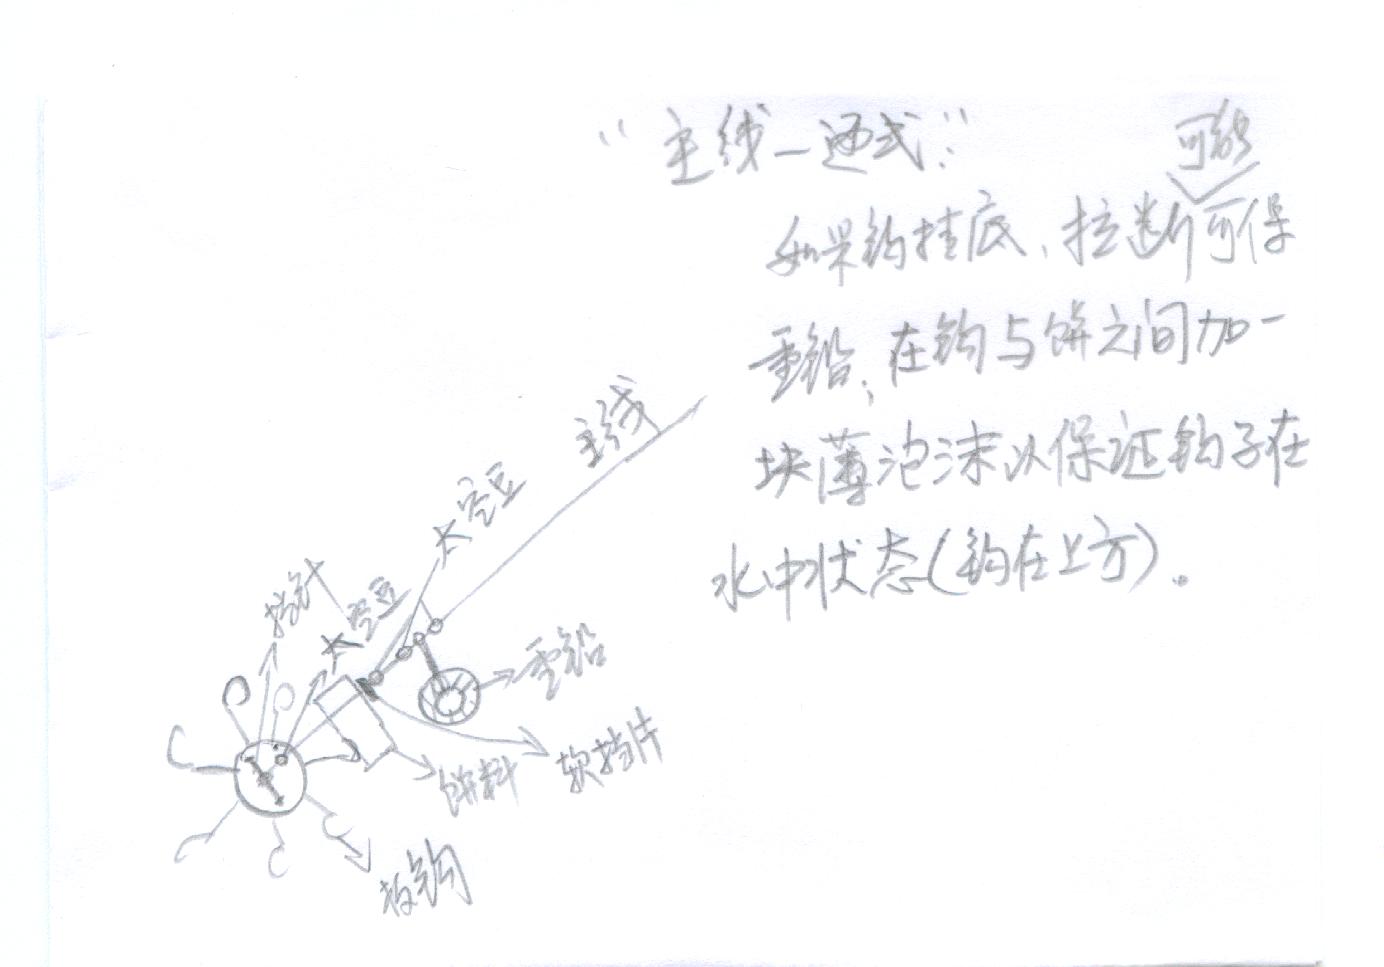 "主线一通式":
可能
如果钩挂底、拉断可保
重铅,在钩与饼之间加一
块薄泡沫以保证钩子在
水中状态(钩在上方)。
主线
太空豆
挡针
太空豆
重铅
软挡片
饼料
板钩